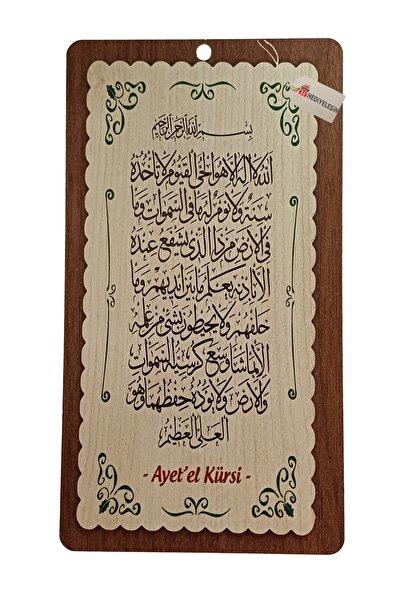 HEDİYELEŞİN
بسم الله الرحمن الرحيم
الله لا اله الا هو الحي القيوم لا تأخذه
سنة ولا نوم له ما في السموات وما
في الارض من ذا الذي يشفع عنده
الا باذنه يعلم ما بين ايديهم وما
خلفهم ولا يحيطون بشئ من علمه
الا بما شاء وسع كرسيه السموات
والارض ولا يؤده حفظهما وهو
العلي العظيم
- Ayet'el Kürsi -